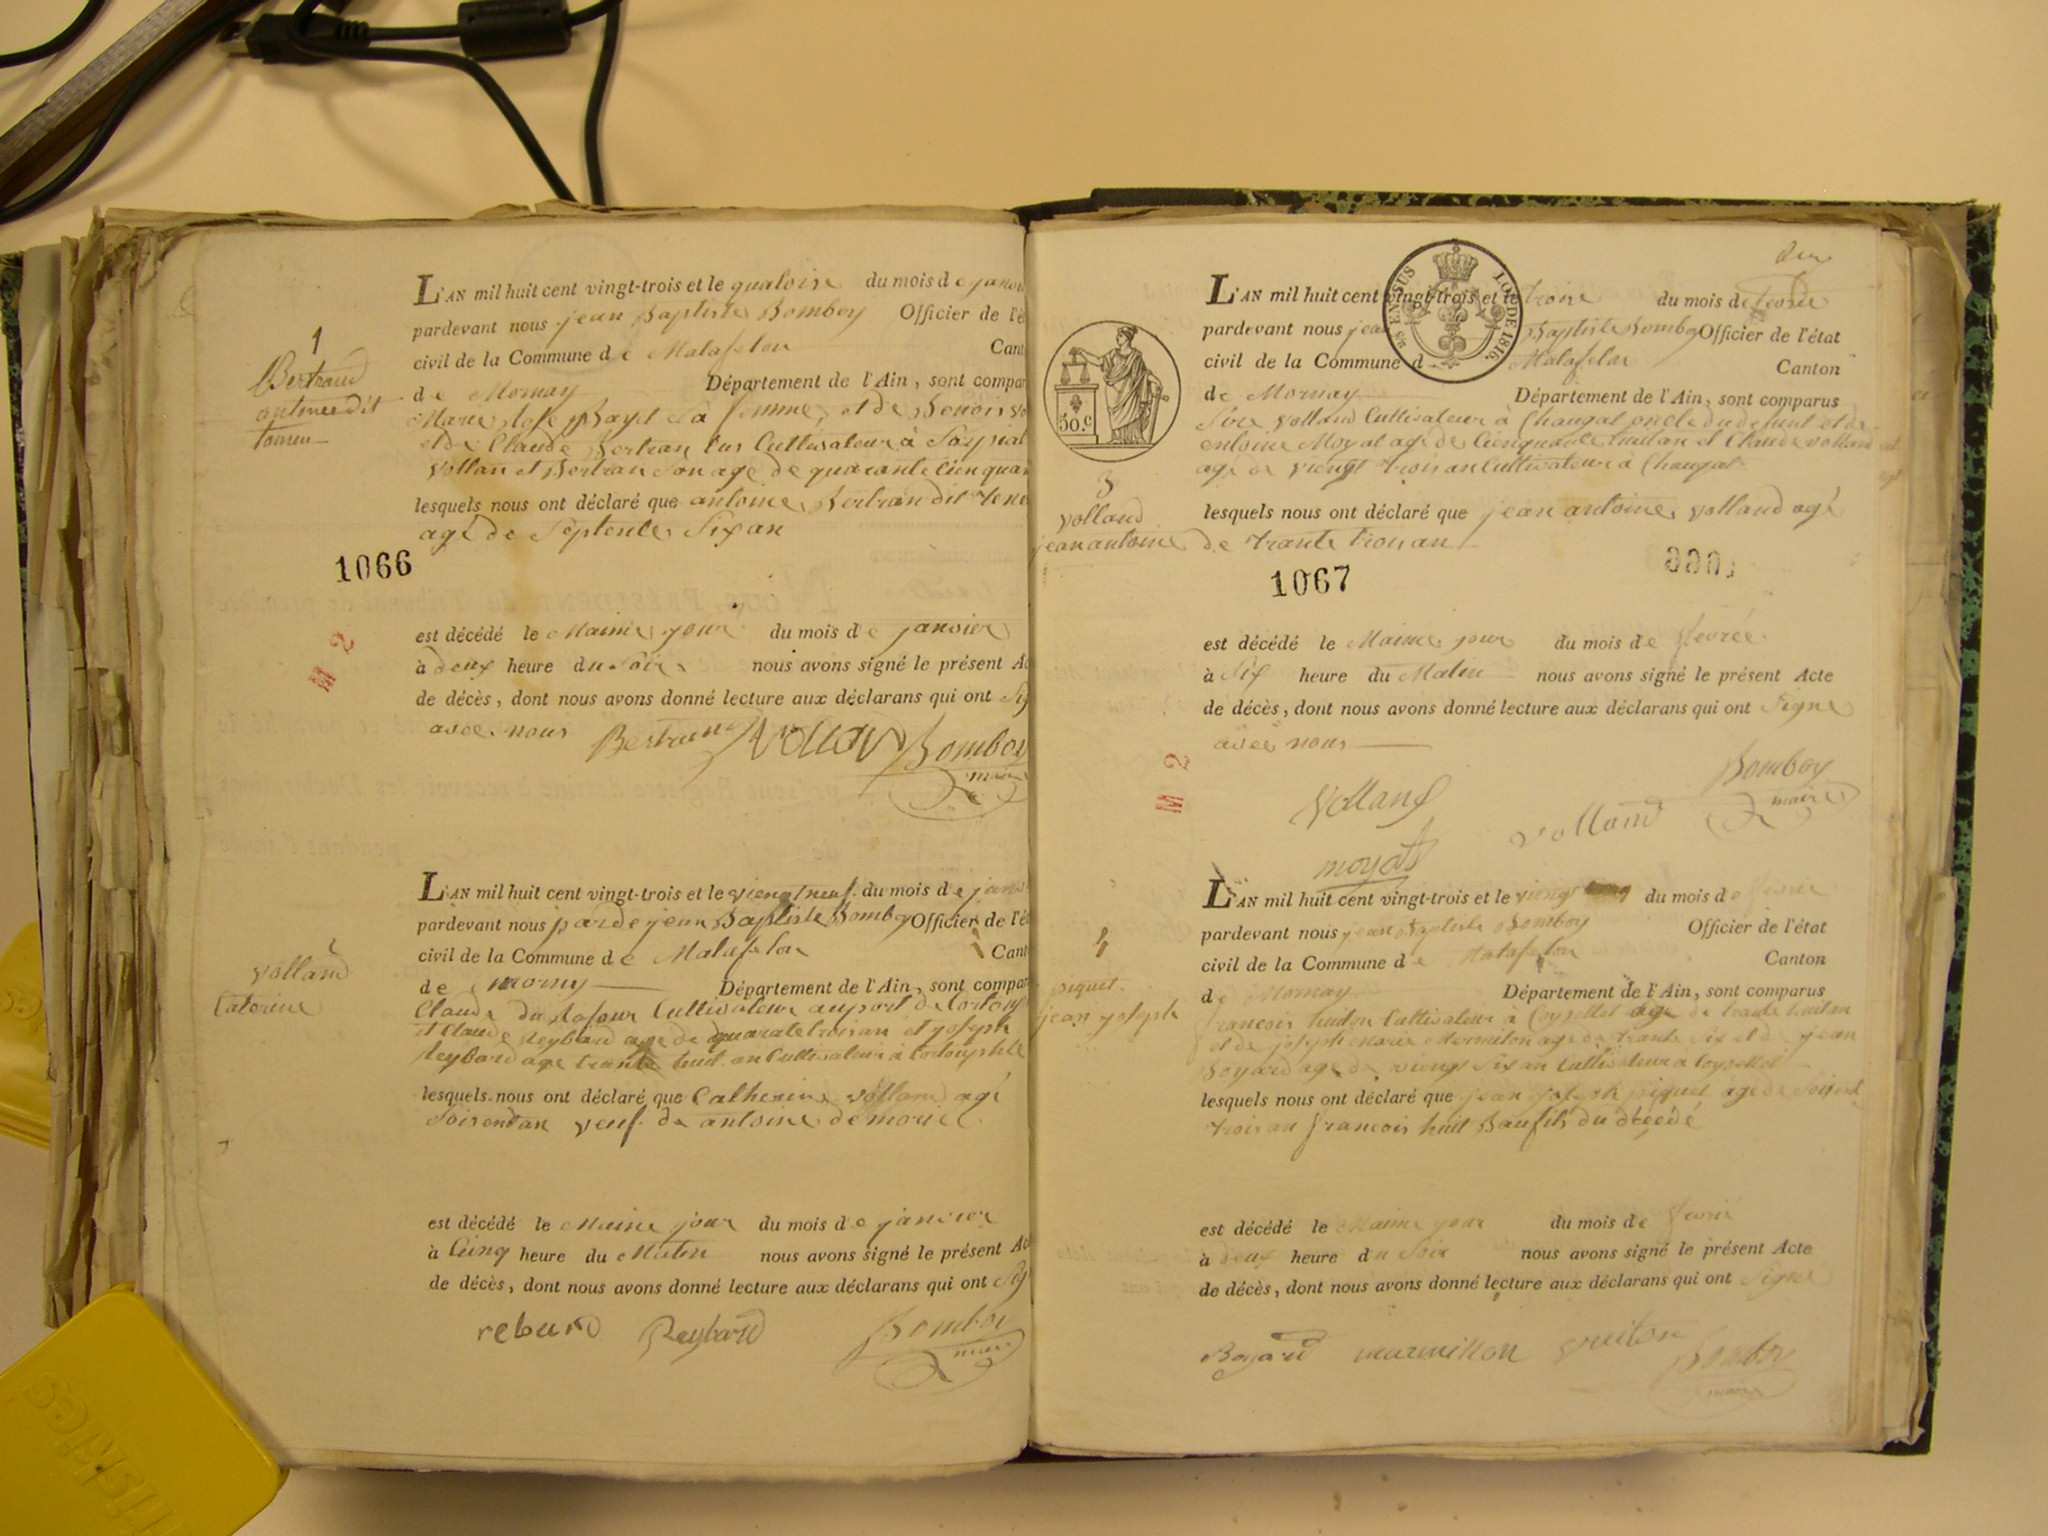 1
Bertrand
antoine dit
L'AN mil huit cent vingt-trois et le quatorse du mois de janvi
pardevant nous jean Baptiste Bomboy Officier de l'é
civil de la Commune de Matafelon Cant
de Mornay Département de l'Ain, sont compar
et de Claude Bertran tus Cultivateur à
Vollan et Bertran son age de quarante cienquan
lesquels nous ont déclaré que antoine Bertran dit
agé de septente six an
1066
M 2
est décédé le Maime jour du mois de janvier
à deux heure du soir nous avons signé le présent Ac
de décès, dont nous avons donné lecture aux déclarans qui ont Sig
avec nous
Bertrand Vollan Bomboy
maire
2
volland
Caterine
L'AN mil huit cent vingt-trois et le viengt neuf du mois de janv
pardevant nous par de jean Baptiste Bomboy Officier de l'é
civil de la Commune de Matafelon Cant
de morny Département de l'Ain, sont compar
Claude du Cultivateur au port de
et Claude Reybard age de quarate troisan et joseph
Reybard age trante huit an Cultivateur à
lesquels nous ont déclaré que Catherine volland agé
soisentan veuf de antoine demorie
est décédé le Maime jour du mois de janvier
à Cinq heure du Matin nous avons signé le présent Ac
de décès, dont nous avons donné lecture aux déclarans qui ont Sig
rebard Reybard Bomboy
maire
deux
L'AN mil huit cent vingt-trois et le troise du mois de fevrie
UN EN SUS
LOI DE 1816.
pardevant nous jean Baptiste Bomboy Officier de l'état
civil de la Commune d Matafelon Canton
de Mornay Département de l'Ain, sont comparus
volland Cultivateur à Chougat oncle du defunt et de
antoine Moyat age de Cienquante huitan et Claude volland
age de viengt trois an Cultivateur à Chougat
50.c
3
volland
jean antoine
lesquels nous ont déclaré que jean antoine volland agé
de trante troisan
1067
M 2
est décédé le Maime jour du mois de fevrée
à Six heure du Matin nous avons signé le présent Acte
de décès, dont nous avons donné lecture aux déclarans qui ont Signe
avec nous
Volland
volland
Bomboy
maire
moyat
4
piquet
jean joseph
L'AN mil huit cent vingt-trois et le viengt du mois de fevrie
pardevant nous jean Baptiste Bomboy Officier de l'état
civil de la Commune de Matafelon Canton
de Mornay Département de l'Ain, sont comparus
francois Cultivateur à age de trante huitan
et de joseph marie Mermilon age de trante six et de jean
Boyard age de viengt six an Cultivateur a
lesquels nous ont déclaré que jean joseph piquet age de soisente
trois an francois huit Baufils du décédé
est décédé le Maime jour du mois de fevrié
à deux heure du Soir nous avons signé le présent Acte
de décès, dont nous avons donné lecture aux déclarans qui ont Signe
Boyard marmillon vuiton Bomboy
maire